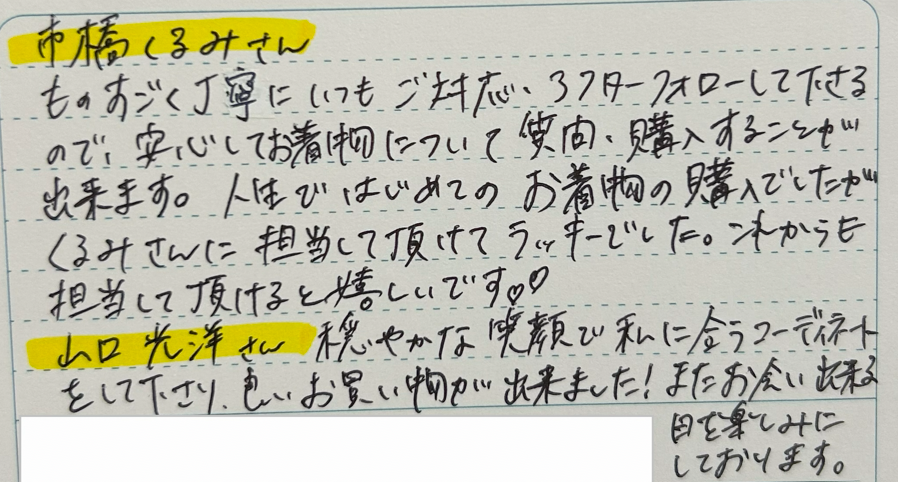 市橋くるみさん
ものすごく丁寧にいつもご対応、アフターフォローして下さる
ので、安心してお着物について質問、購入することが
出来ます。人生ではじめてのお着物の購入でしたが
くるみさんに担当して頂けてラッキーでした。これからも
担当して頂けると嬉しいです♡♡
山口光洋さん 穏やかな笑顔で私に合うコーディネート
をして下さり、良いお買い物が出来ました!またお会い出来る
日を楽しみに
しております。